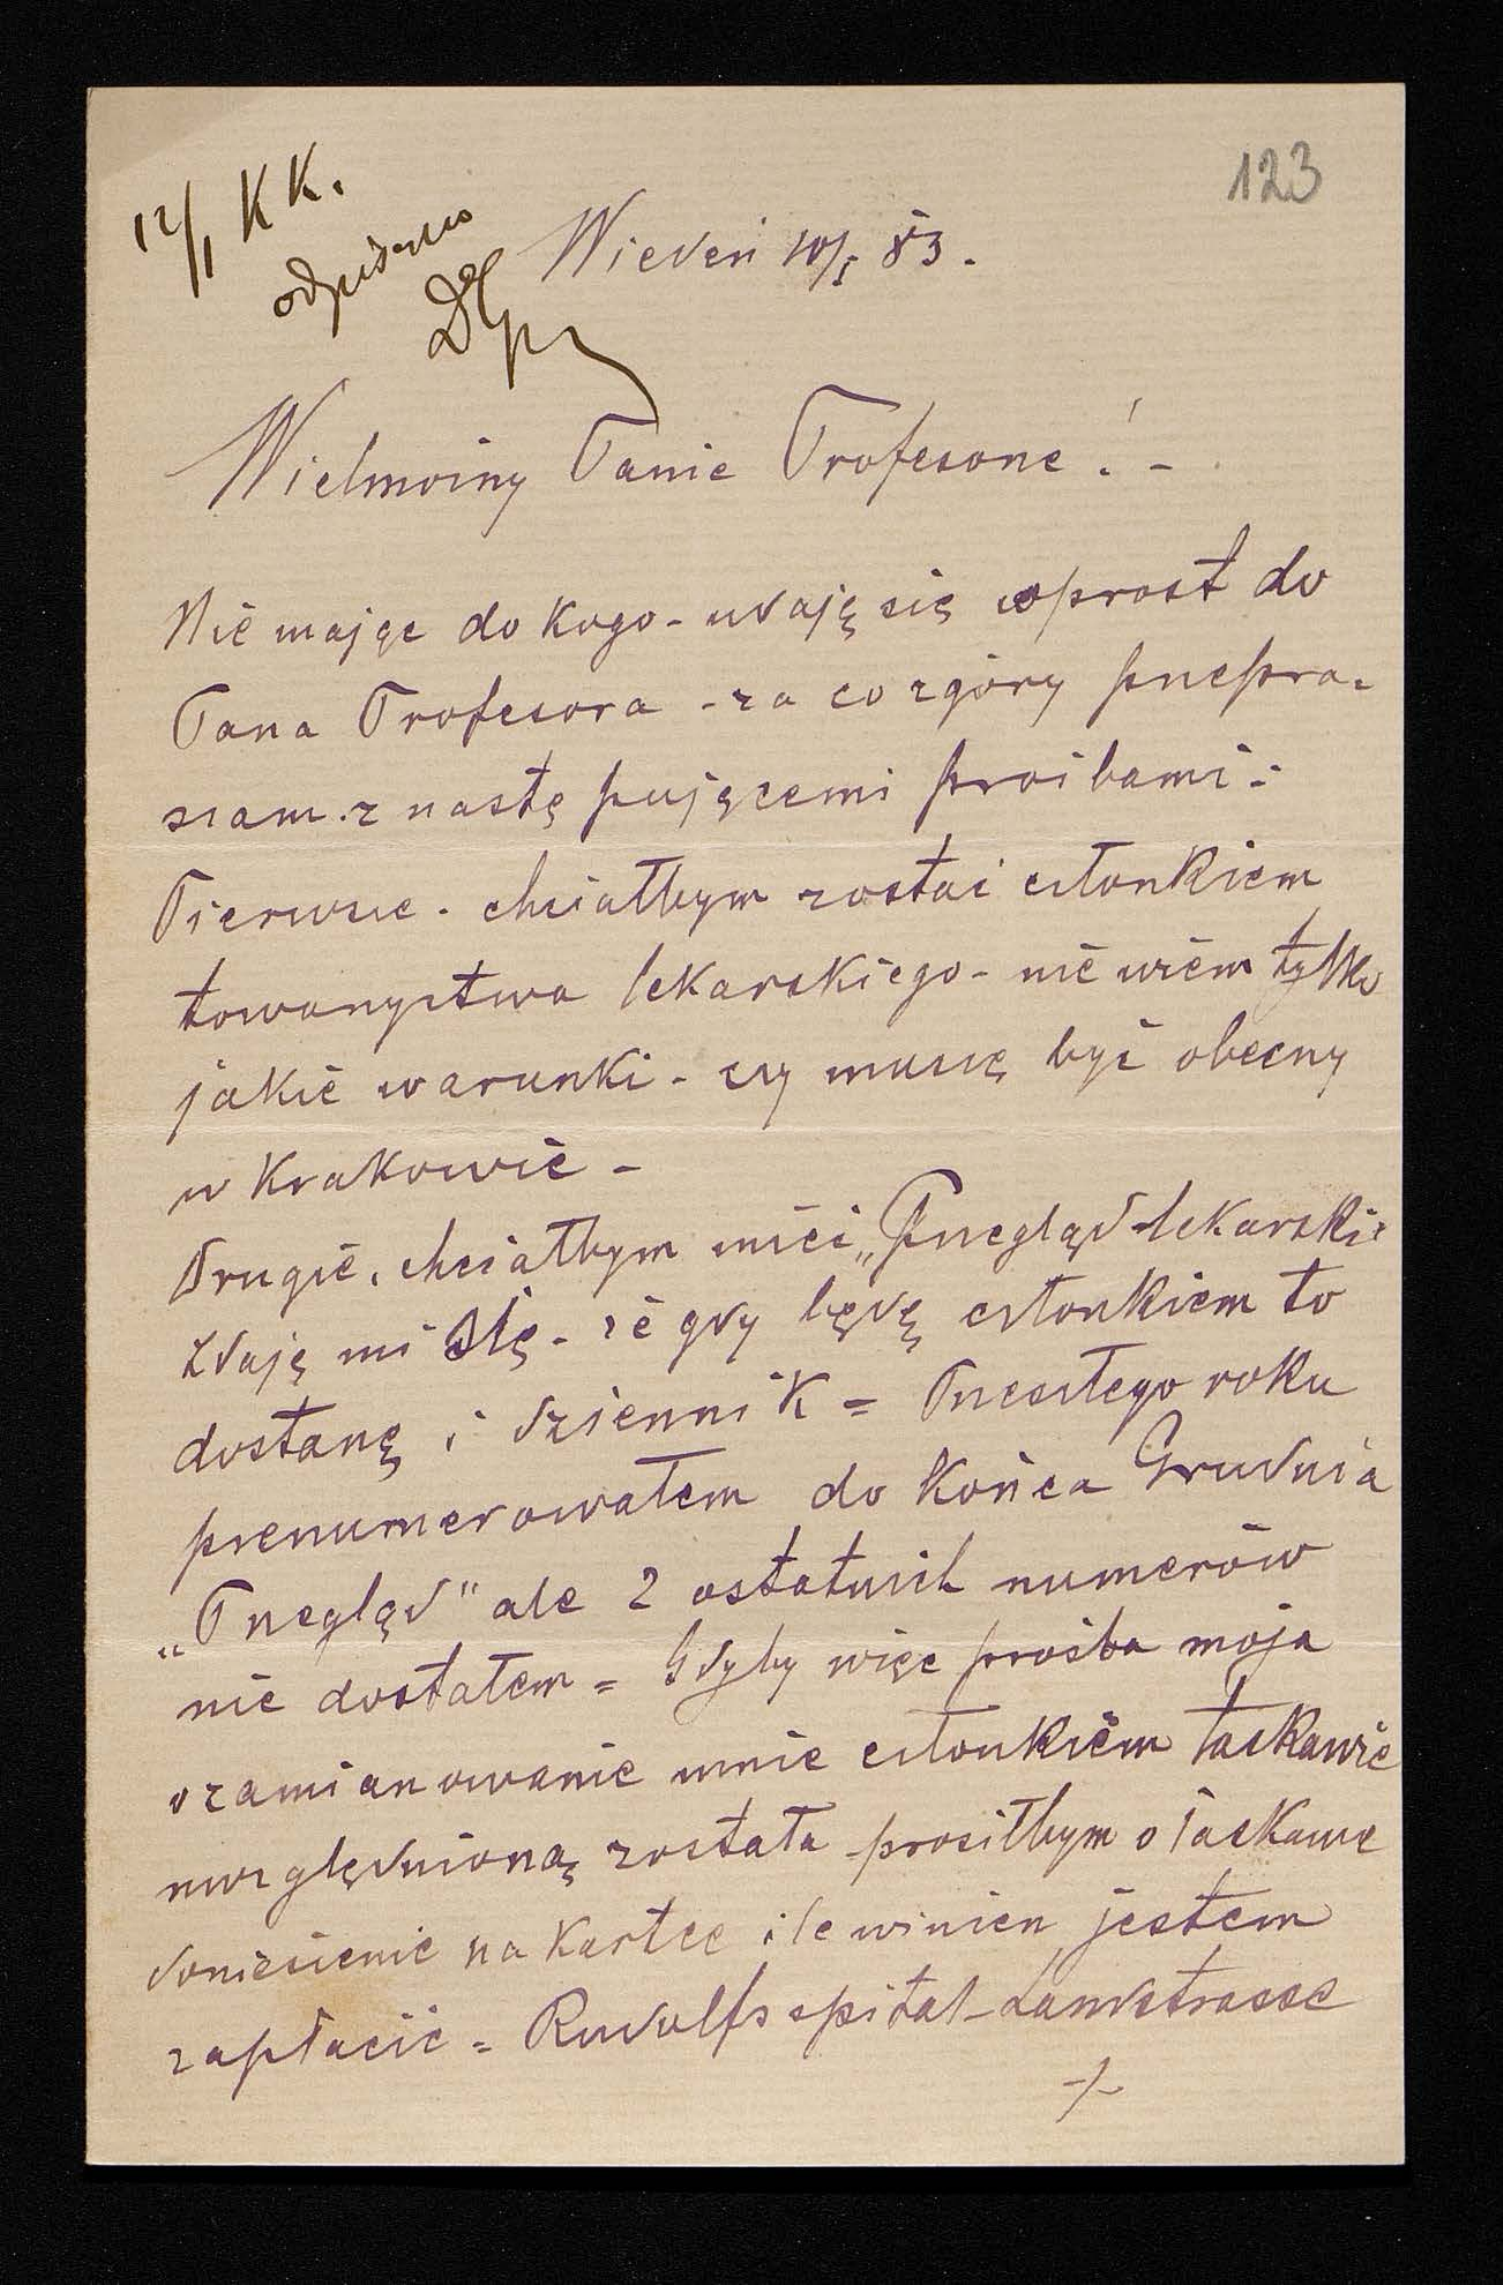 12/1 KK.
123
odpisano
Wiedeń 10/I 83.
Wielmożny Panie Profesorze! -
Nie mając do kogo - udaję się wprost do
Pana Profesora - za co zgóry przepra-
szam. z następującemi prośbami:
Pierwsze - chciałbym zostać członkiem
towarzystwa lekarskiego - nie wiem tylko
jakie warunki - czy muszę być obecny
w Krakowie -
Drugie, chciałbym mieć „Przegląd lekarski"
zdaję mi się - że gdy będę członkiem to
dostanę i dziennik = Przeszłego roku
prenumerowałem do Końca Grudnia
„Przegląd" ale 2 ostatnich numerów
nie dostałem = Gdyby więc prośba moja
o zamianowanie mnie członkiem łaskawie
uwzględnioną została prosiłbym o łaskawe
doniesienie na kartce ile winien jestem
zapłacić = Rudolfsspital - Landstrasse
-/-